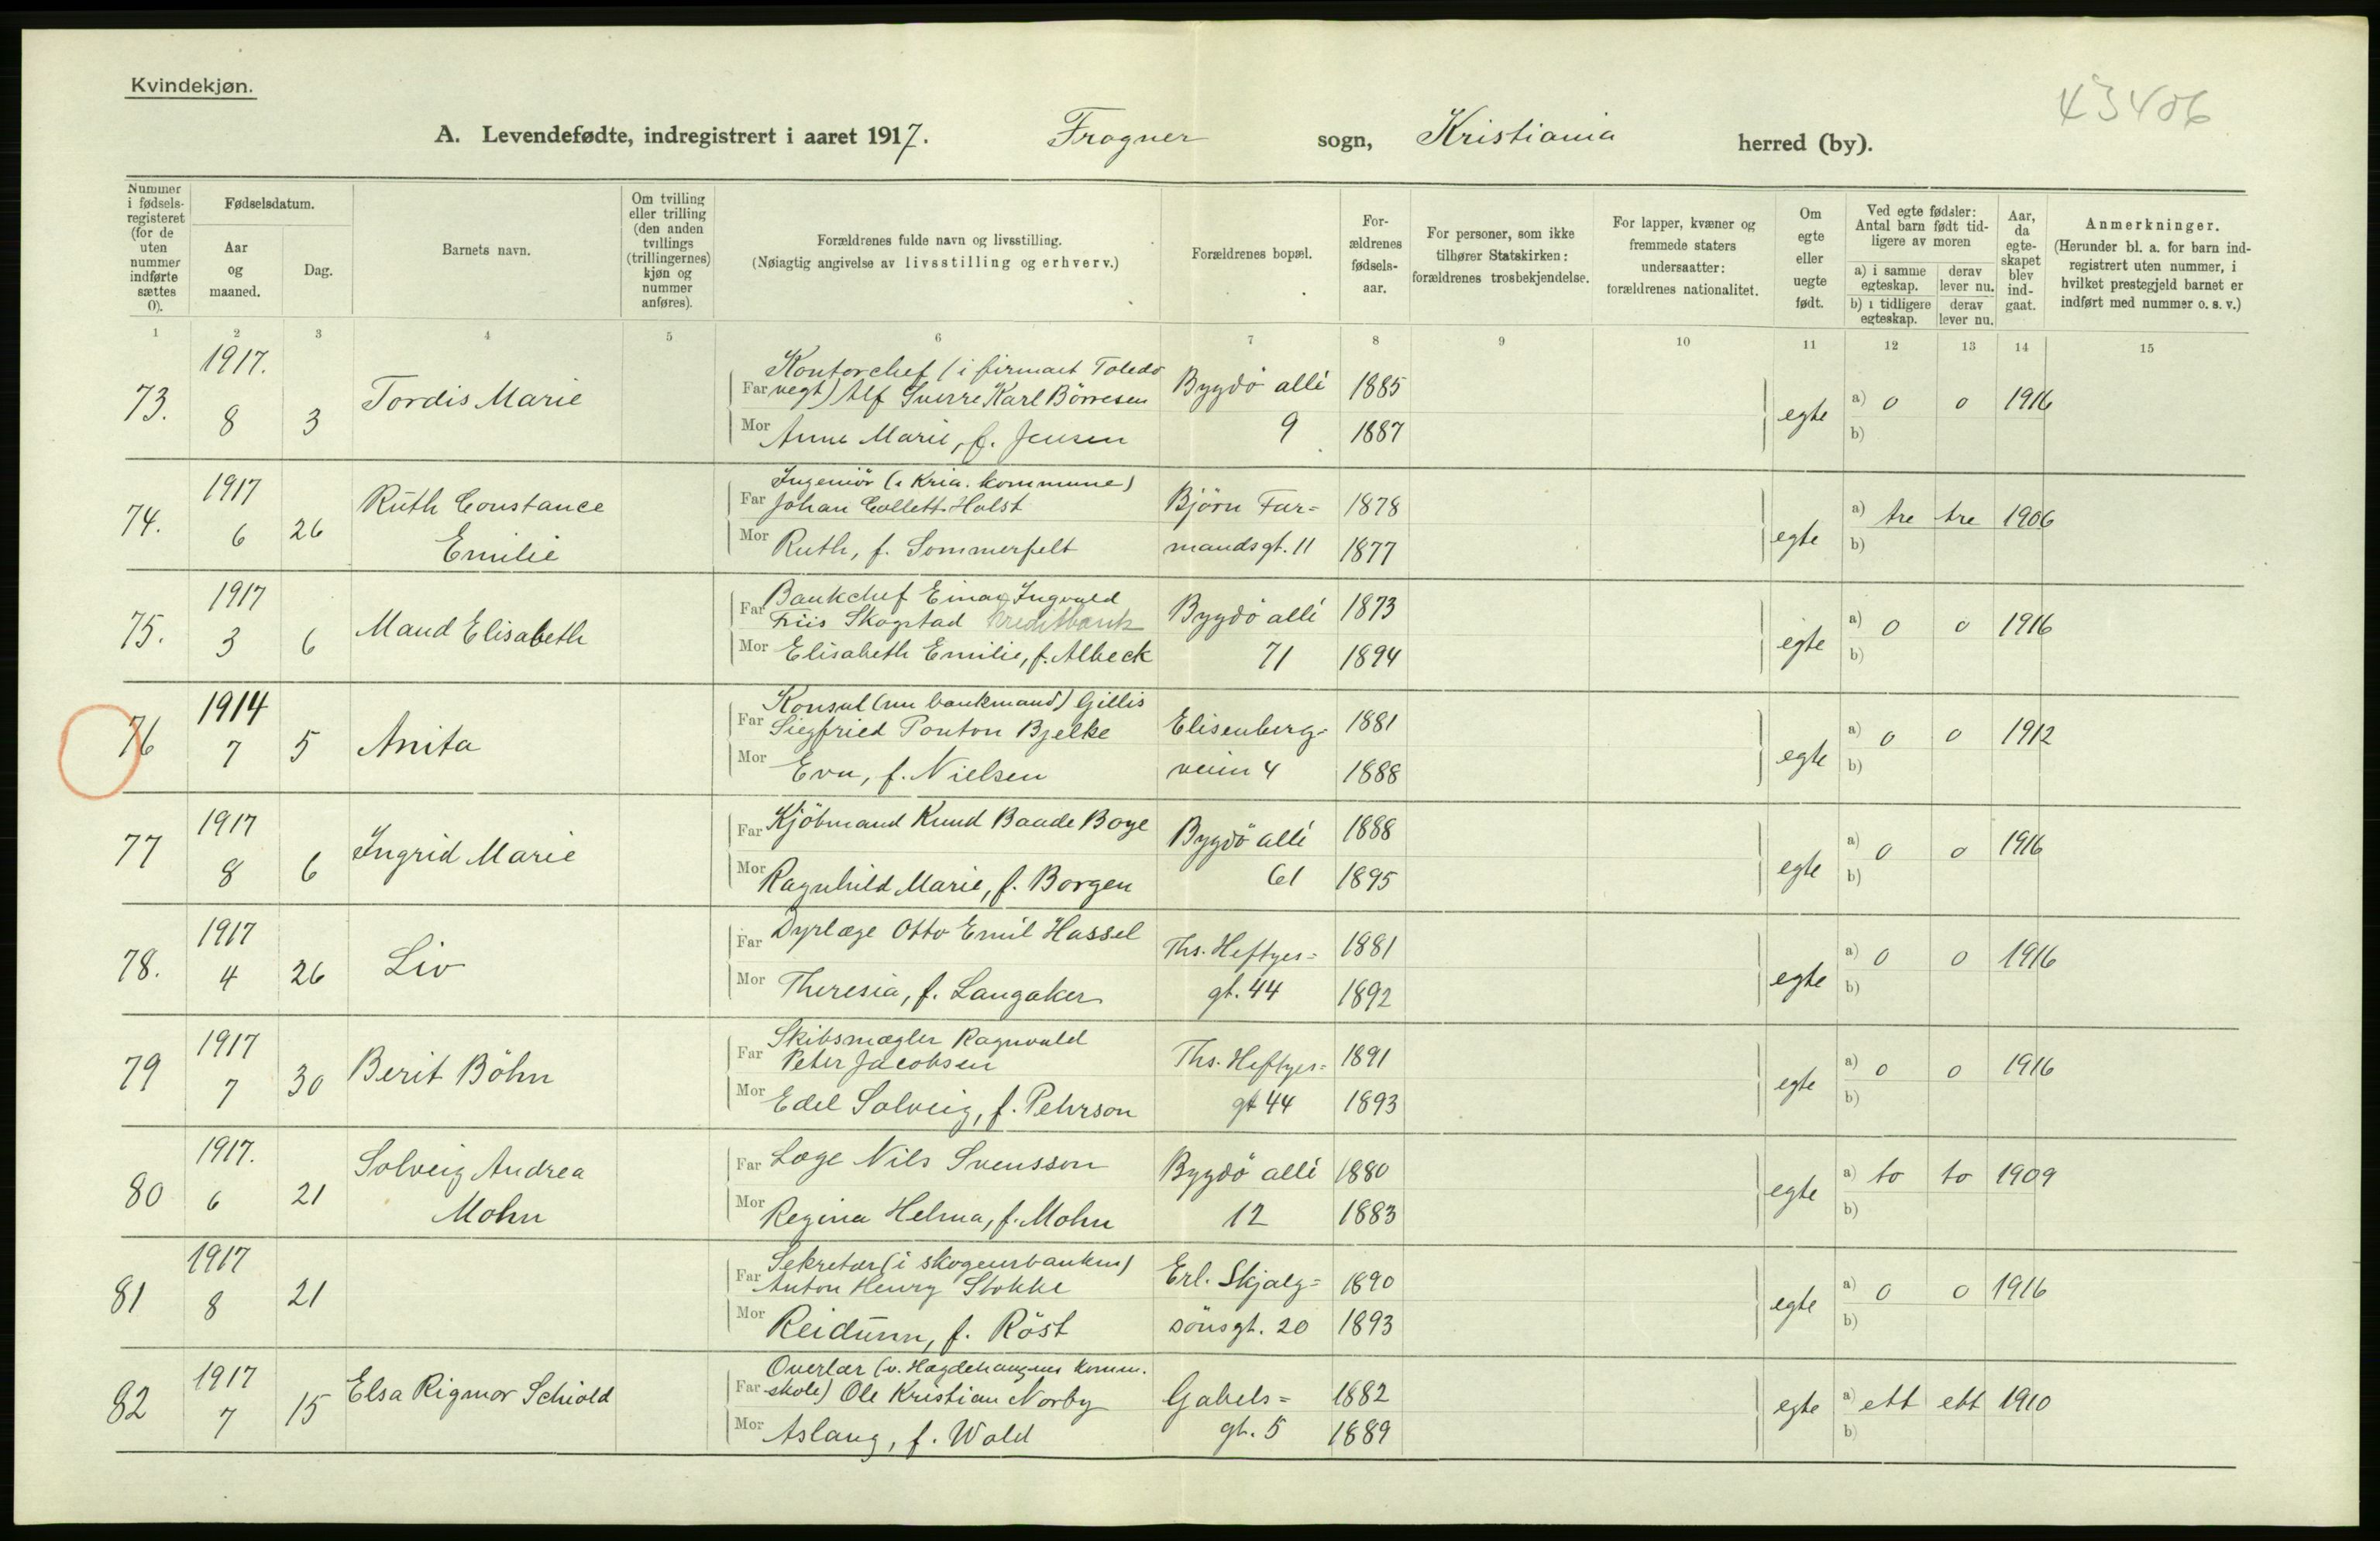 Kvindekjøn.
43406
A. Levendefødte, indregistrert i aaret 1917. Frogner sogn, Kristiania herred (by).
Nummer i fødselsregisteret (for de uten nummer indførte sættes 0).
Fødselsdatum.
Aar og maaned.
Dag.
Barnets navn.
Om tvilling eller trilling (den anden tvillings (trillingernes) kjøn og nummer anføres).
Forældrenes fulde navn og livsstilling.
(Nøiagtig angivelse av livsstilling og erhverv.)
Forældrenes bopæl.
Forældrenes fødselsaar.
For personer, som ikke tilhører Statskirken: forældrenes trosbekjendelse.
For lapper, kvæner og fremmede staters undersaatter: forældrenes nationalitet.
Om egte eller uegte født.
Ved egte fødsler: Antal barn født tidligere av moren
a) i samme egteskap. derav lever nu.
b) i tidligere egteskap. derav lever nu.
Aar, da egteskapet blev indgaat.
Anmerkninger.
(Herunder bl. a. for barn indregistrert uten nummer, i hvilket prestegjeld barnet er indført med nummer o. s. v.)
1 2 3 4 5 6 7 8 9 10 11 12 13 14 15
73. 1917. 8 3 Tordis Marie
Kontorchef (i firmaet Toledo
Far vegt) Alf Sverre Karl Börresen Bygdö allé 1885
Mor Anne Marie, f. Jensen 9 1887
egte a) 0 0 1916
b)
74. 1917 6 26 Ruth Constance
Emilie
Ingeniör (i Kria. kommune)
Far Johan Collett Holst Björn Far= 1878
Mor Ruth, f. Sommerfelt mandsgt. 11 1877
egte a) tre tre 1906
b)
75. 1917 3 6 Maud Elisabeth
Bankchef Einar Ingvald
Far Friis Skogstad Kreditbank Bygdö allé 1873
Mor Elisabeth Emilie, f. Albeck 71 1894
egte a) 0 0 1916
b)
76 1914 7 5 Anita
Konsul (nu bankmand) Gillis
Far Siegfried Ponton Bjelke Elisenberg- 1881
Mor Eva, f. Nielsen veien 4 1888
egte a) 0 0 1912
b)
77 1917 8 6 Ingrid Marie
Far Kjöbmand Knud Baade Boye Bygdö allé 1888
Mor Ragnhild Marie, f. Borgen 61 1895
egte a) 0 0 1916
b)
78. 1917 4 26 Liv
Far Dyrlæge Otto Emil Hassel Ths. Heftyes= 1881
Mor Theresia, f. Langaker gt. 44 1892
egte a) 0 0 1916
b)
79 1917 7 30 Berit Böhn
Skibsmægler Ragnvald
Far Peter Jacobsen Ths. Heftyes= 1891
Mor Edel Solveig, f. Pehrson gt 44 1893
egte a) 0 0 1916
b)
80 1917. 6 21 Solveig Andrea
Mohn
Far Læge Nils Svensson Bygdö allé 1880
Mor Regina Helma, f. Mohn 12 1883
egte a) to to 1909
b)
81 1917 8 21
Sekretær (i skogeierbanken)
Far Anton Henry Stokke Erl. Skjalg= 1890
Mor Reidunn, f. Röst sönsgt. 20 1893
egte a) 0 0 1916
b)
82 1917 7 15 Elsa Rigmor Schiold
Overlær (v. Hægdehaugens komm.
Far skole) Ole Kristian Norby Gabels= 1882
Mor Aslaug, f. Wold gt. 5 1889
egte a) ett ett 1910
b)